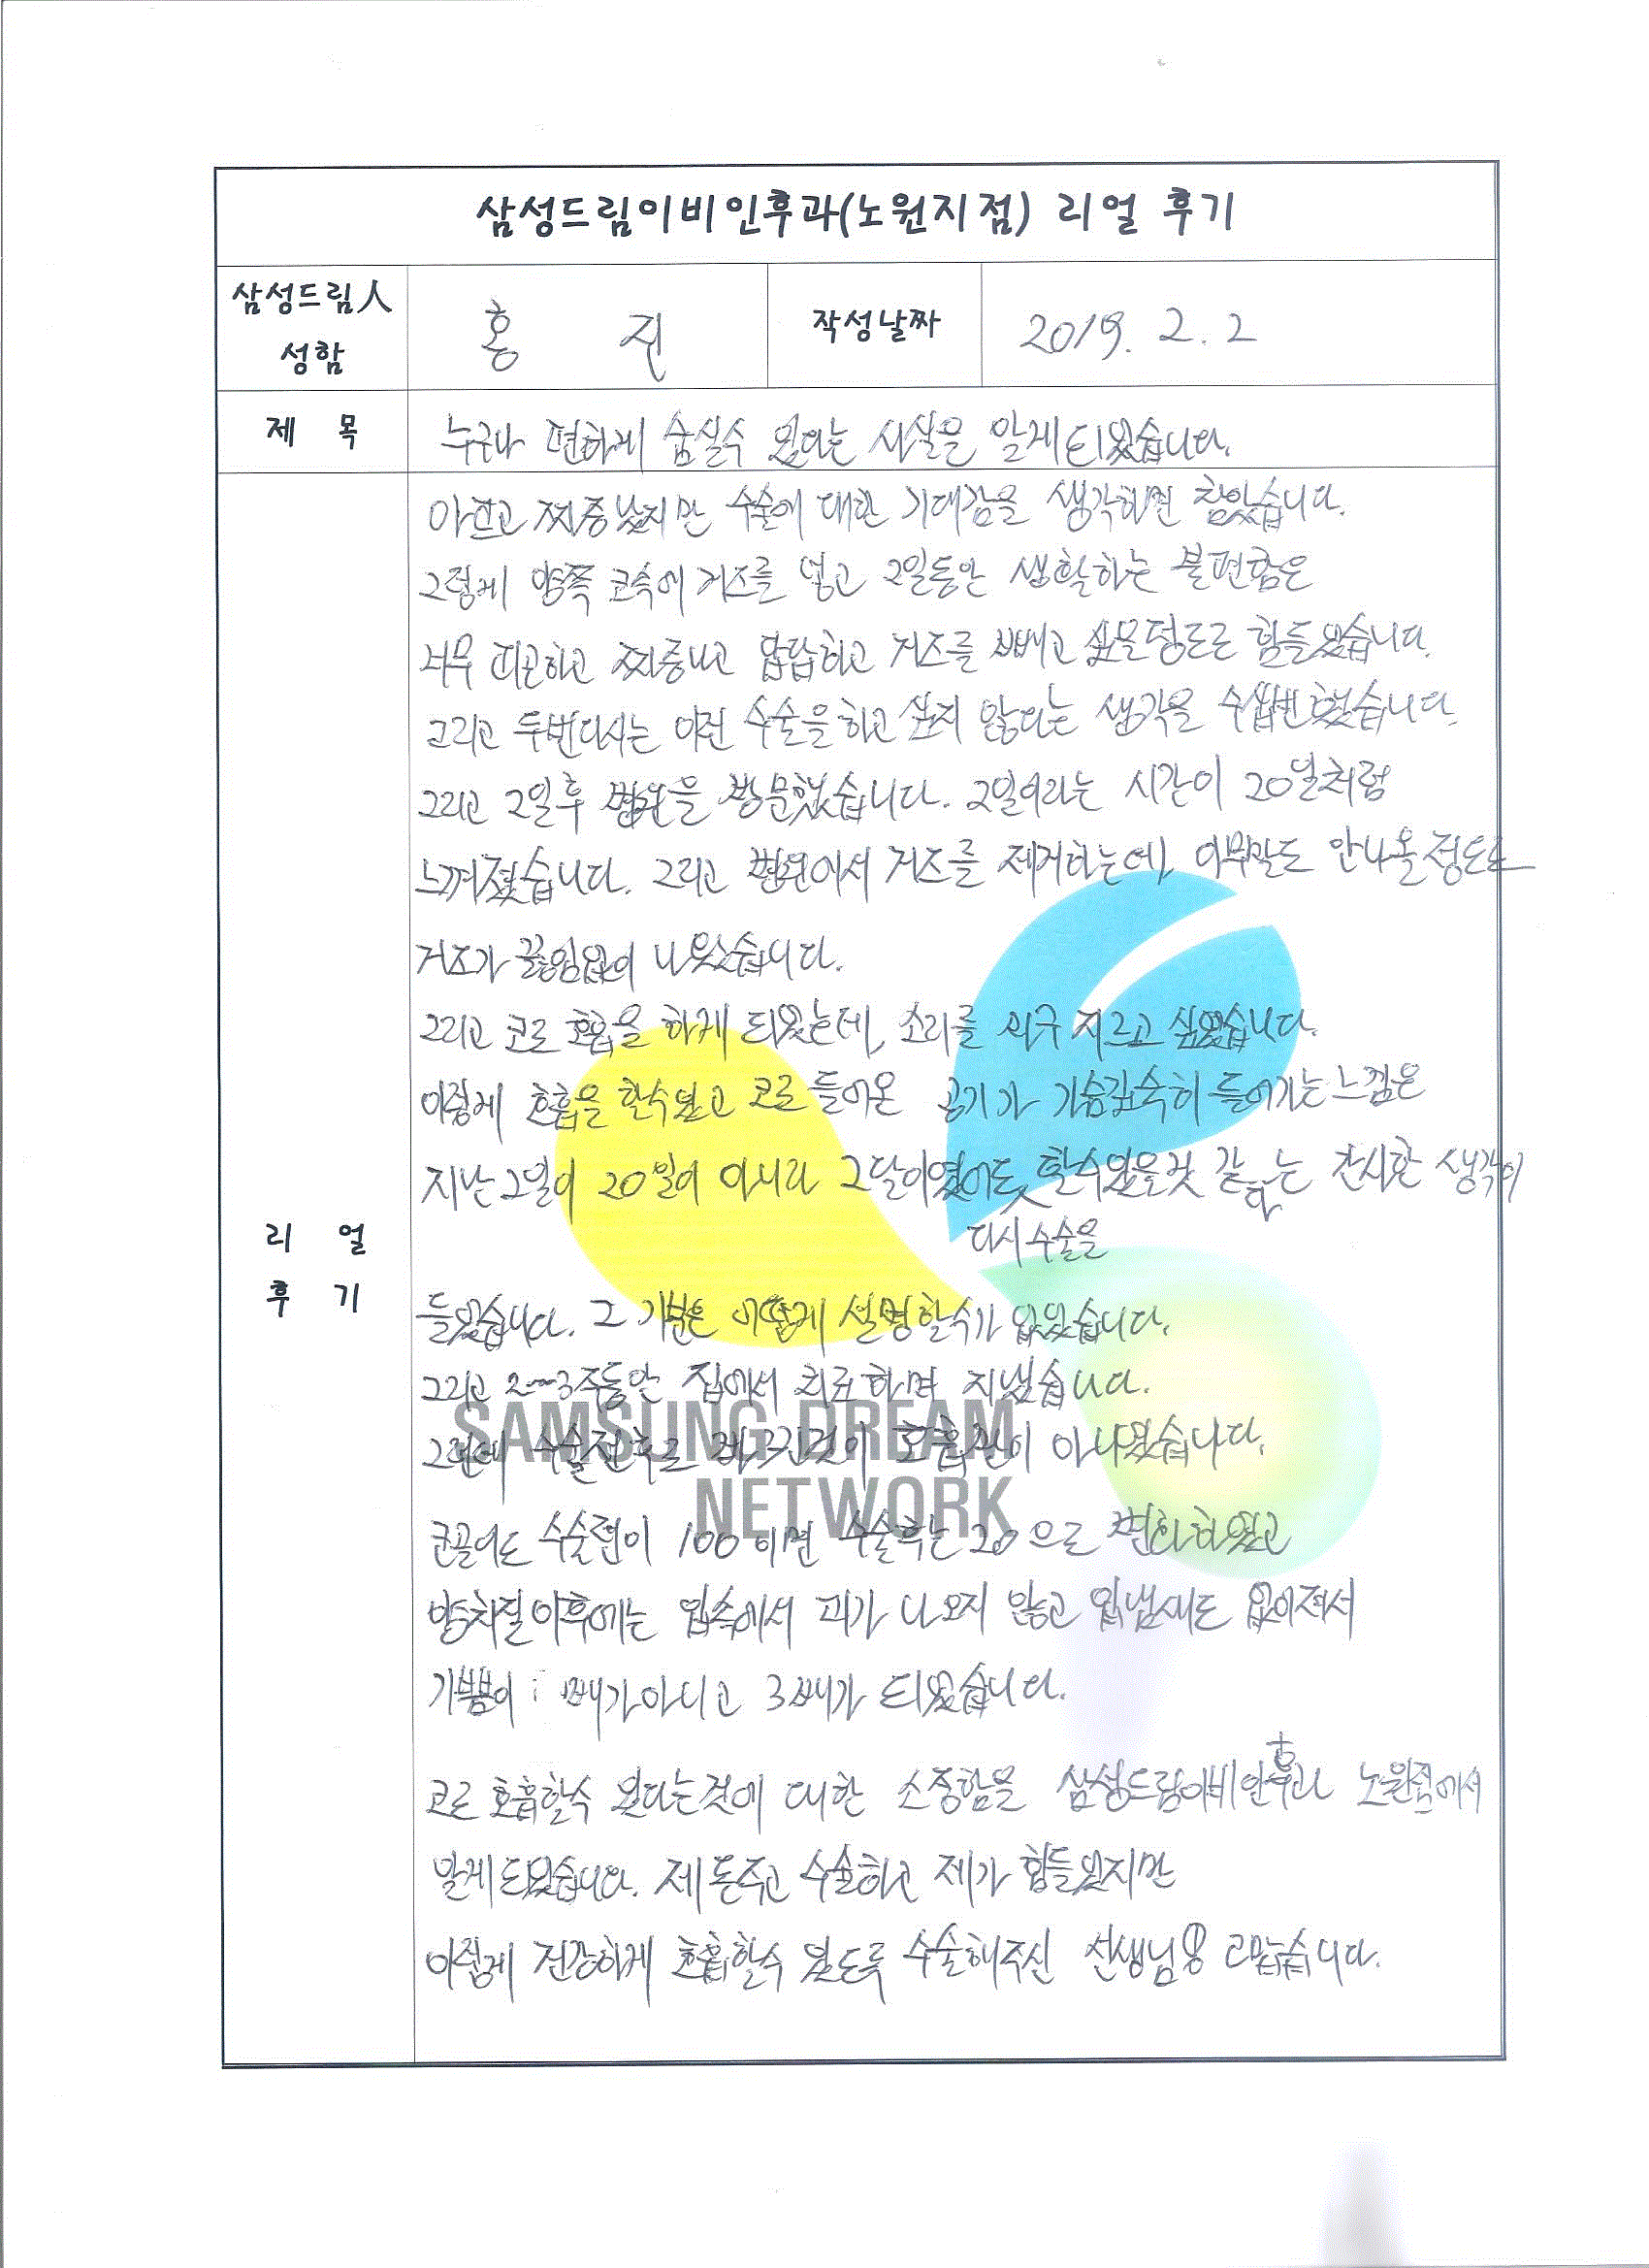 삼성드림이비인후과(노원지점) 리얼 후기
삼성드림人
성함
홍 진
작성날짜
2019. 2. 2
제 목
누구나 편하게 숨쉴수 있다는 사실을 알게 되었습니다.
아프고 짜증났지만 수술에 대한 기대감을 생각하면 참았습니다.
그렇게 양쪽 코속에 거즈를 넣고 2일동안 생활하는 불편함은
너무 피곤하고 짜증나고 답답하고 거즈를 빼고 싶을정도로 힘들었습니다.
그리고 두번다시는 이런 수술을 하고 싶지 않다는 생각을 수십번 했습니다.
그리고 2일후 병원을 방문했습니다. 2일이라는 시간이 20일처럼
느껴졌습니다. 그리고 병원에서 거즈를 제거하는데, 아무말도 안나올정도로
거즈가 끝임없이 나왔습니다.
그리고 코로 호흡을 하게 되었는데, 소리를 마구 지르고 싶었습니다.
이렇게 호흡을 할수있고 코로 들어온 공기가 가슴깊숙히 들어가는 느낌은
지난 2일이 20일이 아니라 2달이였어도 할수있을것 같다는 간사한 생각이
다시 수술을
리 얼
후 기
들었습니다. 그 기분은 어떻게 설명할수가 없었습니다.
그리고 2~3주동안 집에서 치료하며 지냈습니다.
그런데 수술전후로 바뀐것이 호흡만이 아니였습니다.
SAMSUNG DREAM
NETWORK
코골이도 수술전이 100이면 수술후는 20으로 변화하였고
양치질이후에는 입속에서 피가 나오지 않고 입냄새도 없어져서
기쁨이 배가아니고 3배가 되었습니다.
코로 호흡할수 있다는것에 대한 소중함을 삼성드림이비인후과 노원점에서
알게되었습니다. 제돈주고 수술하고 제가 힘들었지만
이렇게 건강하게 호흡할수 있도록 수술해주신 선생님 고맙습니다.